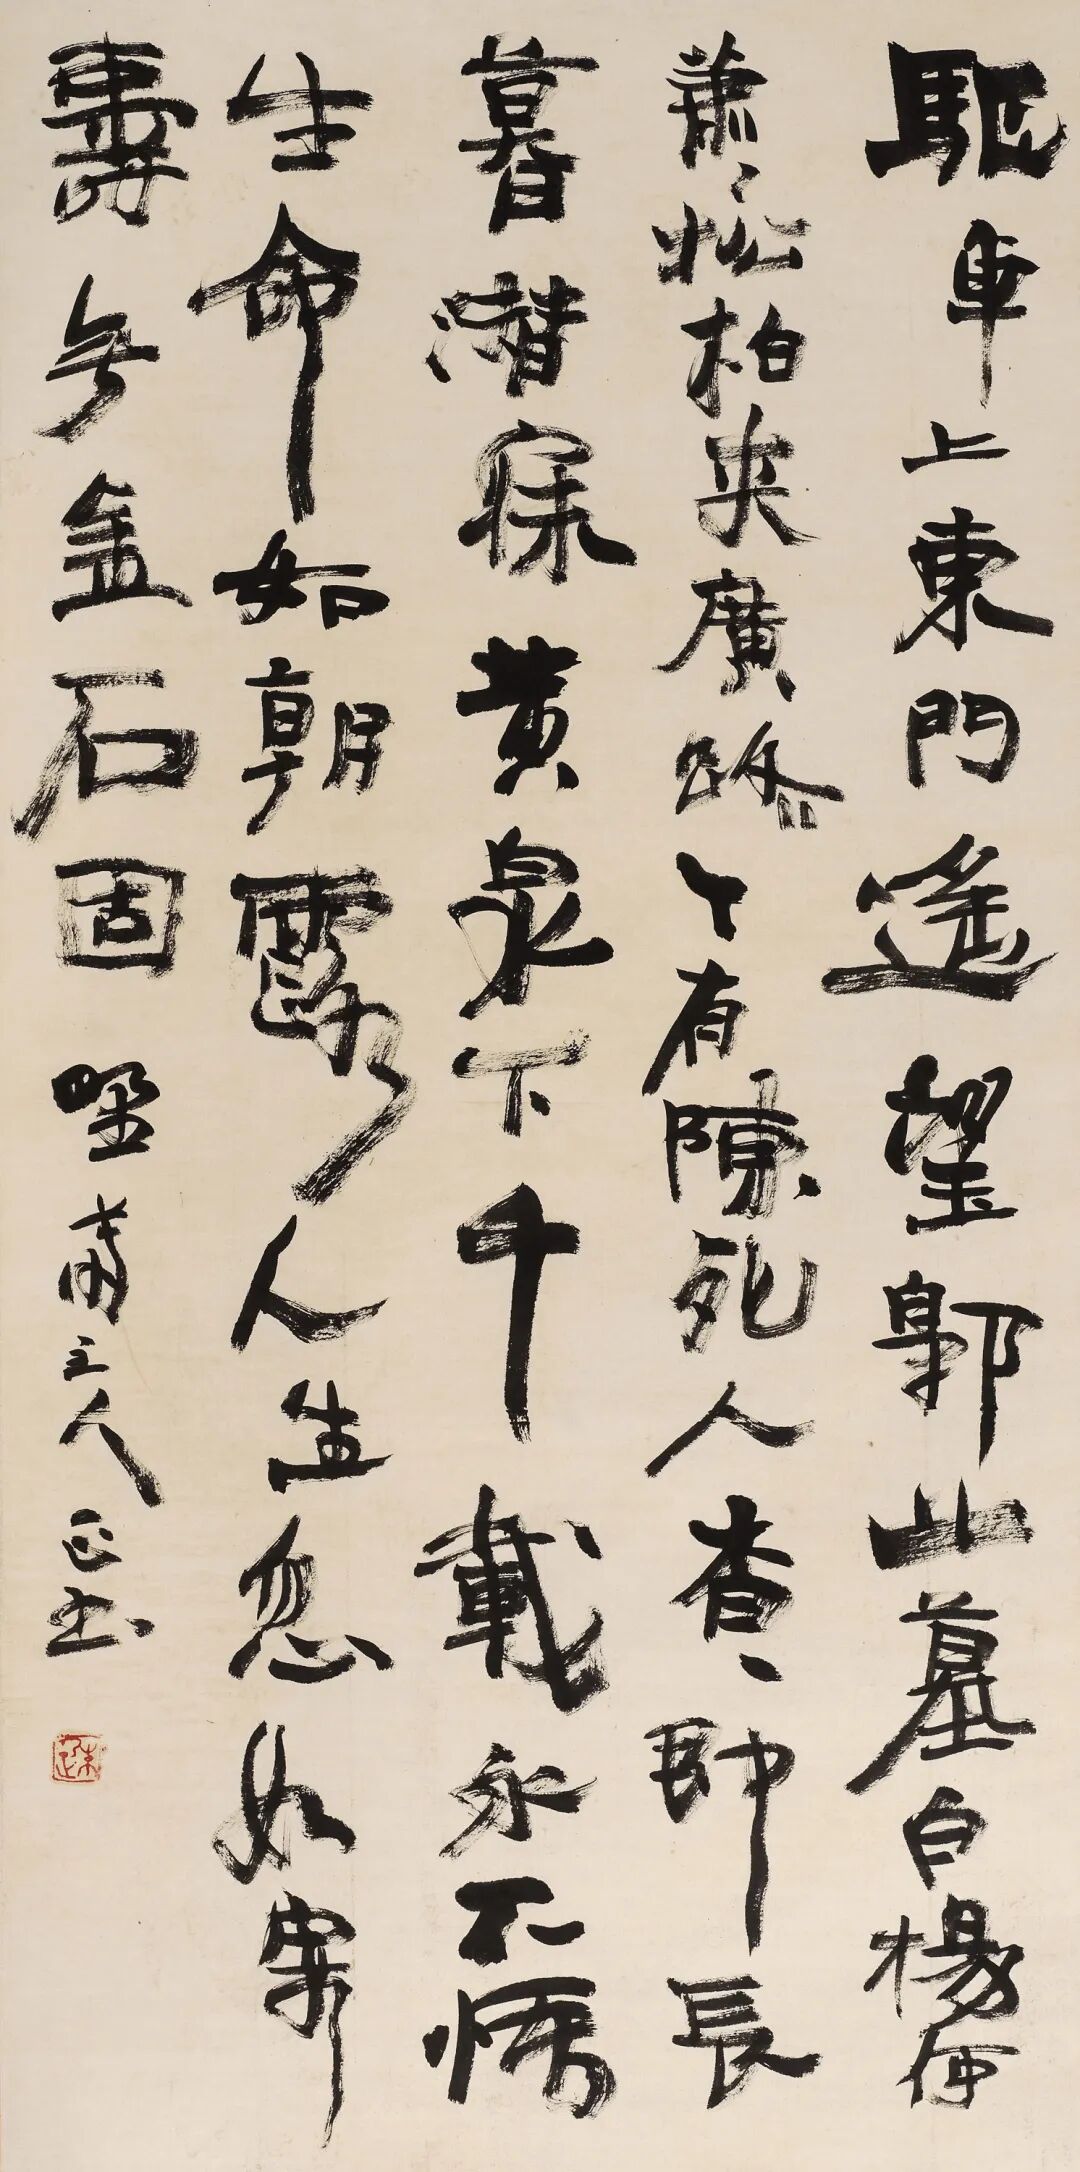 驅車上東門遙望郭北墓白楊何
蕭〻松柏夾廣路下有陳死人杳〻即長
暮潛寐黃泉下千載永不悟
生命如朝露人生忽如寄
壽無金石固 堅齋主人正书